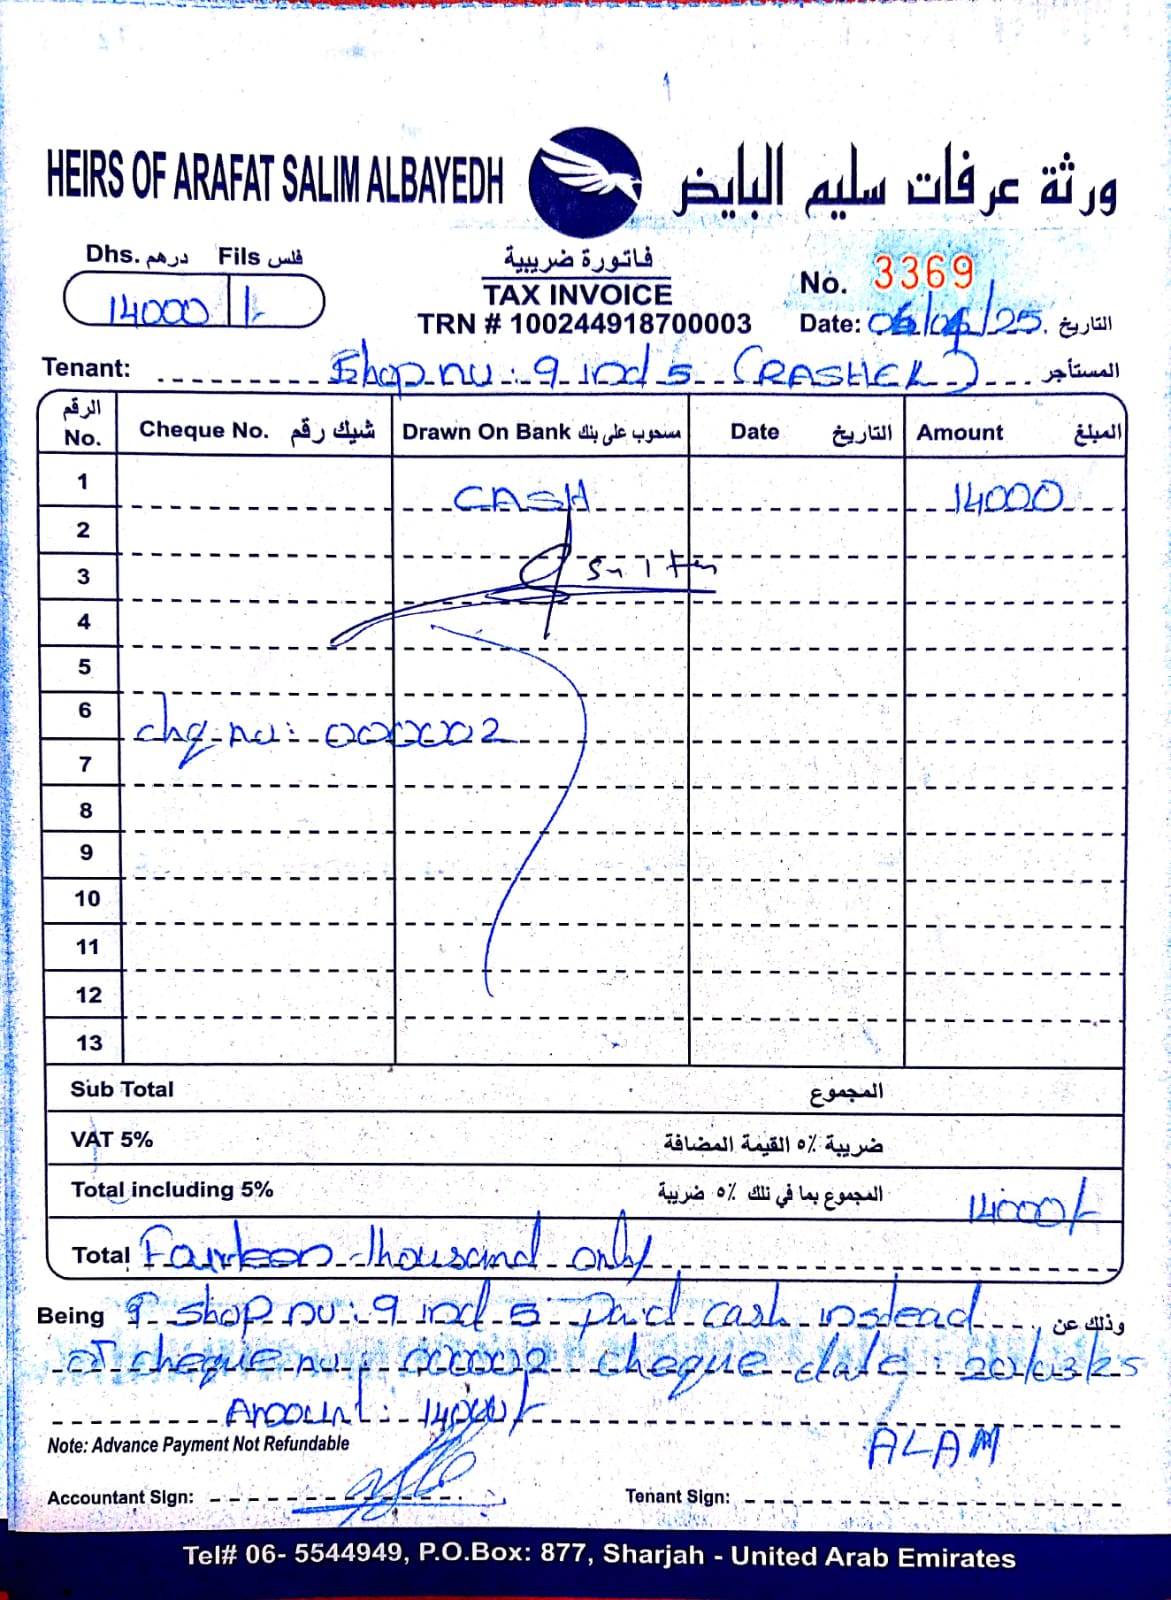 HEIRS OF ARAFAT SALIM ALBAYEDH ورثة عرفات سليم البايض
Dhs. درهم Fils فلس
14000 /-
فاتورة ضريبية
TAX INVOICE
TRN # 100244918700003
No. 3369
Date: 06/06/25 التاريخ
Tenant: Shop nu: 9 ind 5 (RASHEK) المستأجر
الرقم No. Cheque No. شيك رقم Drawn On Bank مسحوب على بنك Date التاريخ Amount المبلغ
1 CASH 14000
2
3
4
5
6 chq nu: 000002
7
8
9
10
11
12
13
Sub Total المجموع
VAT 5% ضريبة ٥٪ القيمة المضافة
Total including 5% المجموع بما في ذلك ٥٪ ضريبة 14000/-
Total Fourteen thousand only
Being shop nu: 9 ind 5 paid cash instead وذلك عن
of cheque nu: 000002 cheque date: 20/03/25
Amount: 14000/-
Note: Advance Payment Not Refundable
ALAM
Accountant Sign: Tenant Sign:
Tel# 06- 5544949, P.O.Box: 877, Sharjah - United Arab Emirates